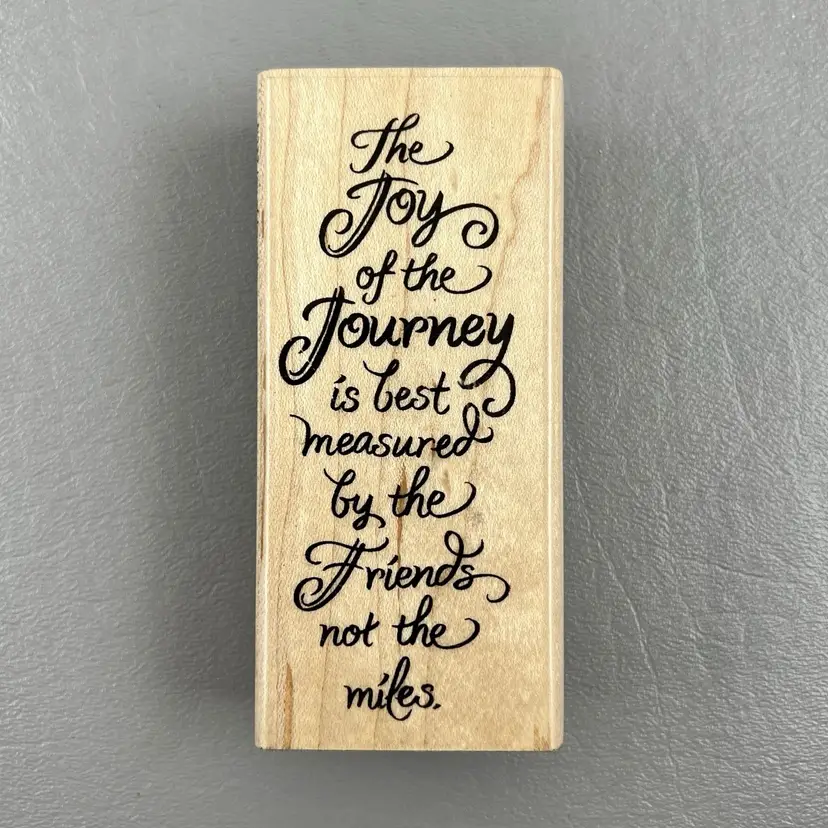 The
Joy
of the
Journey
is best
measured
by the
Friends
not the
miles.